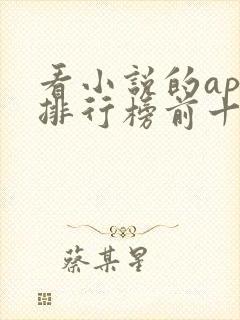 看小说的ap
排行榜前十
蔡某星